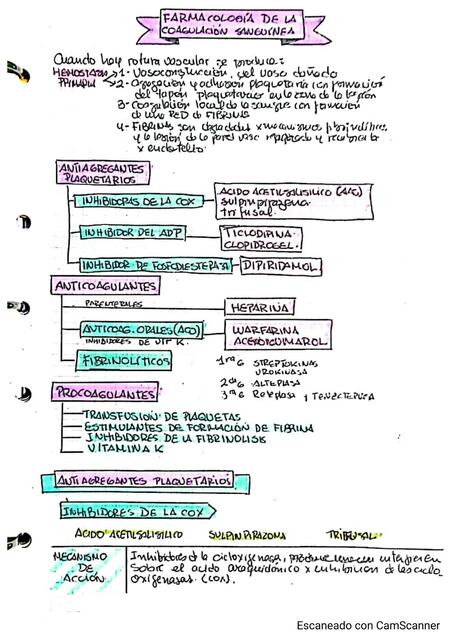 FARMACOLOGÍA DE LA
COAGULACIÓN SANGUÍNEA
Cuando hay rotura vascular se produce:
HEMOSTASIA 1- Vasoconstricción, del vaso dañado
PRIMARIA 2- Agregación y adhesión plaquetaria con formación
del tapón plaquetario en la zona de la lesión
3- Coagulación local de la sangre con formación
de una RED de FIBRINA
4- FIBRINA son degradadas x mecanismos fibrinolíticos
y la lesión de la pared vasc reparada y recubierta
x endotelio.
ANTIAGREGANTES
PLAQUETARIOS
INHIBIDORAS DE LA COX
ACIDO ACETILSALISILICO (AAS)
sulpinpirazona
triflusal.
INHIBIDOR DEL ADP
TICLODIPINA
CLOPIDROGEL.
INHIBIDOR DE FOSFODIESTERASA
DIPIRIDAMOL
ANTICOAGULANTES
PARENTERALES
HEPARINA
ANTICOAG. ORALES (ACO)
INHIBIDORES DE VIT K.
WARFARINA
ACENOCUMAROL
FIBRINOLÍTICOS
1ra G STREPTOKINAS
UROKINASA
2da G ALTEPLASA
3ra G Reteplasa y TENECTEPLASA
PROCOAGULANTES
TRANSFUSIÓN DE PLAQUETAS
ESTIMULANTES DE FORMACIÓN DE FIBRINA
INHIBIDORES DE LA FIBRINOLISIS
VITAMINA K
ANTIAGREGANTES PLAQUETARIOS
INHIBIDORES DE LA COX
ACIDO ACETILSALISILICO SULPINPIRAZONA TRIFLUSAL
MECANISMO
DE
ACCIÓN
Inhibidores de la cicloxigenasa,
sobre el acido araquidónico x inhibición de las ciclo
oxigenasas. (COX).
Escaneado con CamScanner